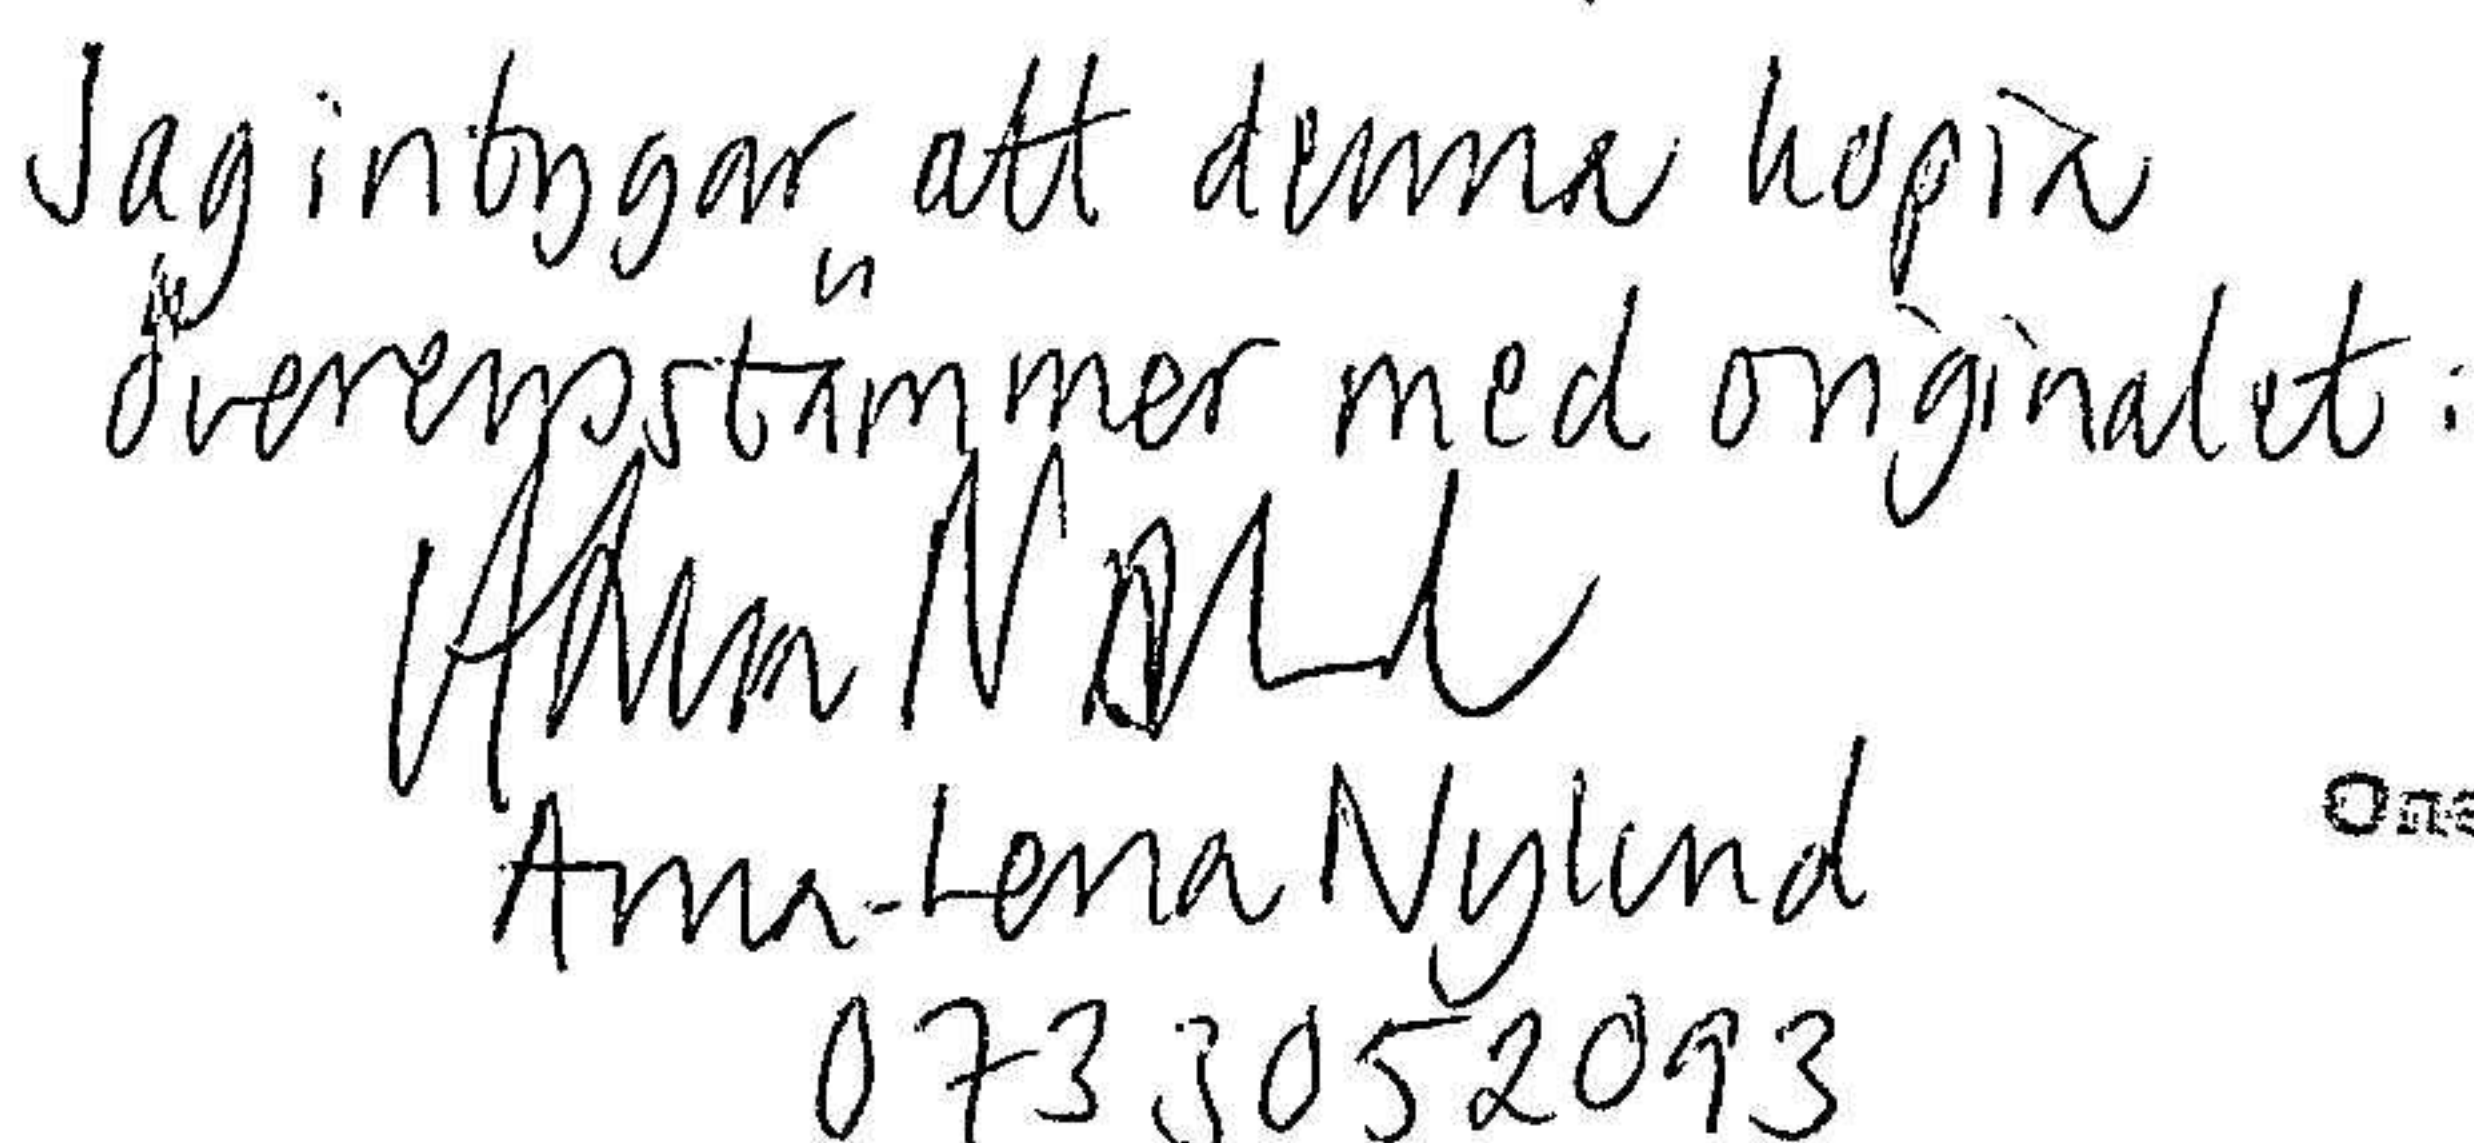 Jag intygar att denna kopia
överensstämmer med originalet:
Anna-Lena Nylund
0733052093